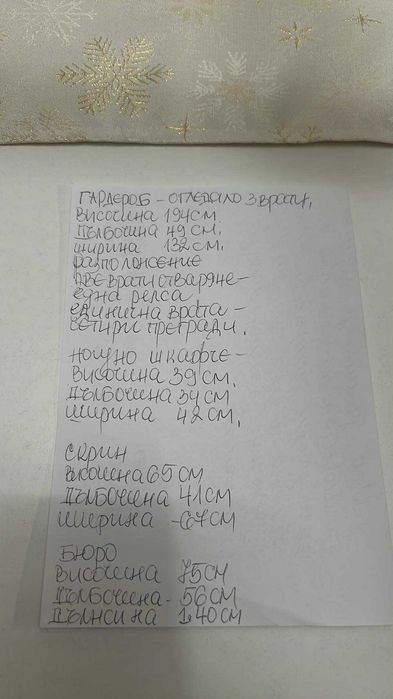 ГАРДЕРОБ - ОГЛЕДАЛО 3 врати,
Височина 194 см.
Дълбочина 49 см.
ширина 132 см.
разположение
две врати отваряне-
една релса,
единична врата-
четири прегради.
нощно шкафче-
Височина 39 см.
Дълбочина 34 см
Ширина 42 см.
СКРИН
височина 65 см
Дълбочина 41 см
Ширина - 67 см
БЮРО
Височина 75 см
Дълбочина - 56 см
Дължина 1.40 см